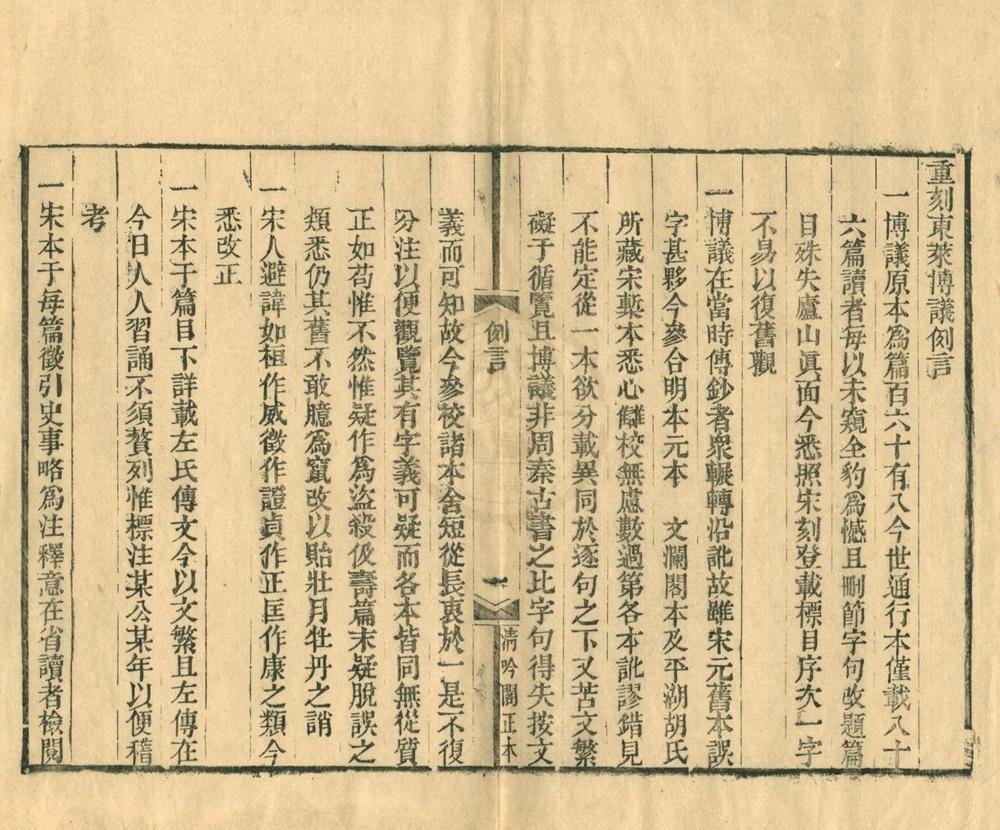 重刻東萊博議例言
一博議原本爲篇百六十有八今世通行本僅載八十
六篇讀者每以未窺全豹爲憾且刪節字句改題篇
目殊失廬山眞面今悉照宋刻登載標目序次一字
不易以復舊觀
一博議在當時傳鈔者衆輾轉沿訛故雖宋元舊本誤
字甚夥今參合明本元本 文瀾閣本及平湖胡氏
所藏宋槧本悉心讎校無慮數過第各本訛謬錯見
不能定從一本欲分載異同於逐句之下又苦文繁
礙于循覽且博議非周秦古書之比字句得失按文
例言
一
淸吟閣正本
義而可知故今參校諸本舍短從長衷於一是不復
分注以便觀覽其有字義可疑而各本皆同無從質
正如苟惟不然惟疑作爲盜殺伋壽篇末疑脫誤之
類悉仍其舊不敢臆爲竄改以貽壯月牡丹之誚
一宋人避諱如桓作威徵作證貞作正匡作康之類今
悉改正
一宋本于篇目下詳載左氏傳文今以文繁且左傳在
今日人人習誦不須贅列惟標注某公某年以便稽
考
一宋本于每篇徵引史事略爲注釋意在省讀者檢閱